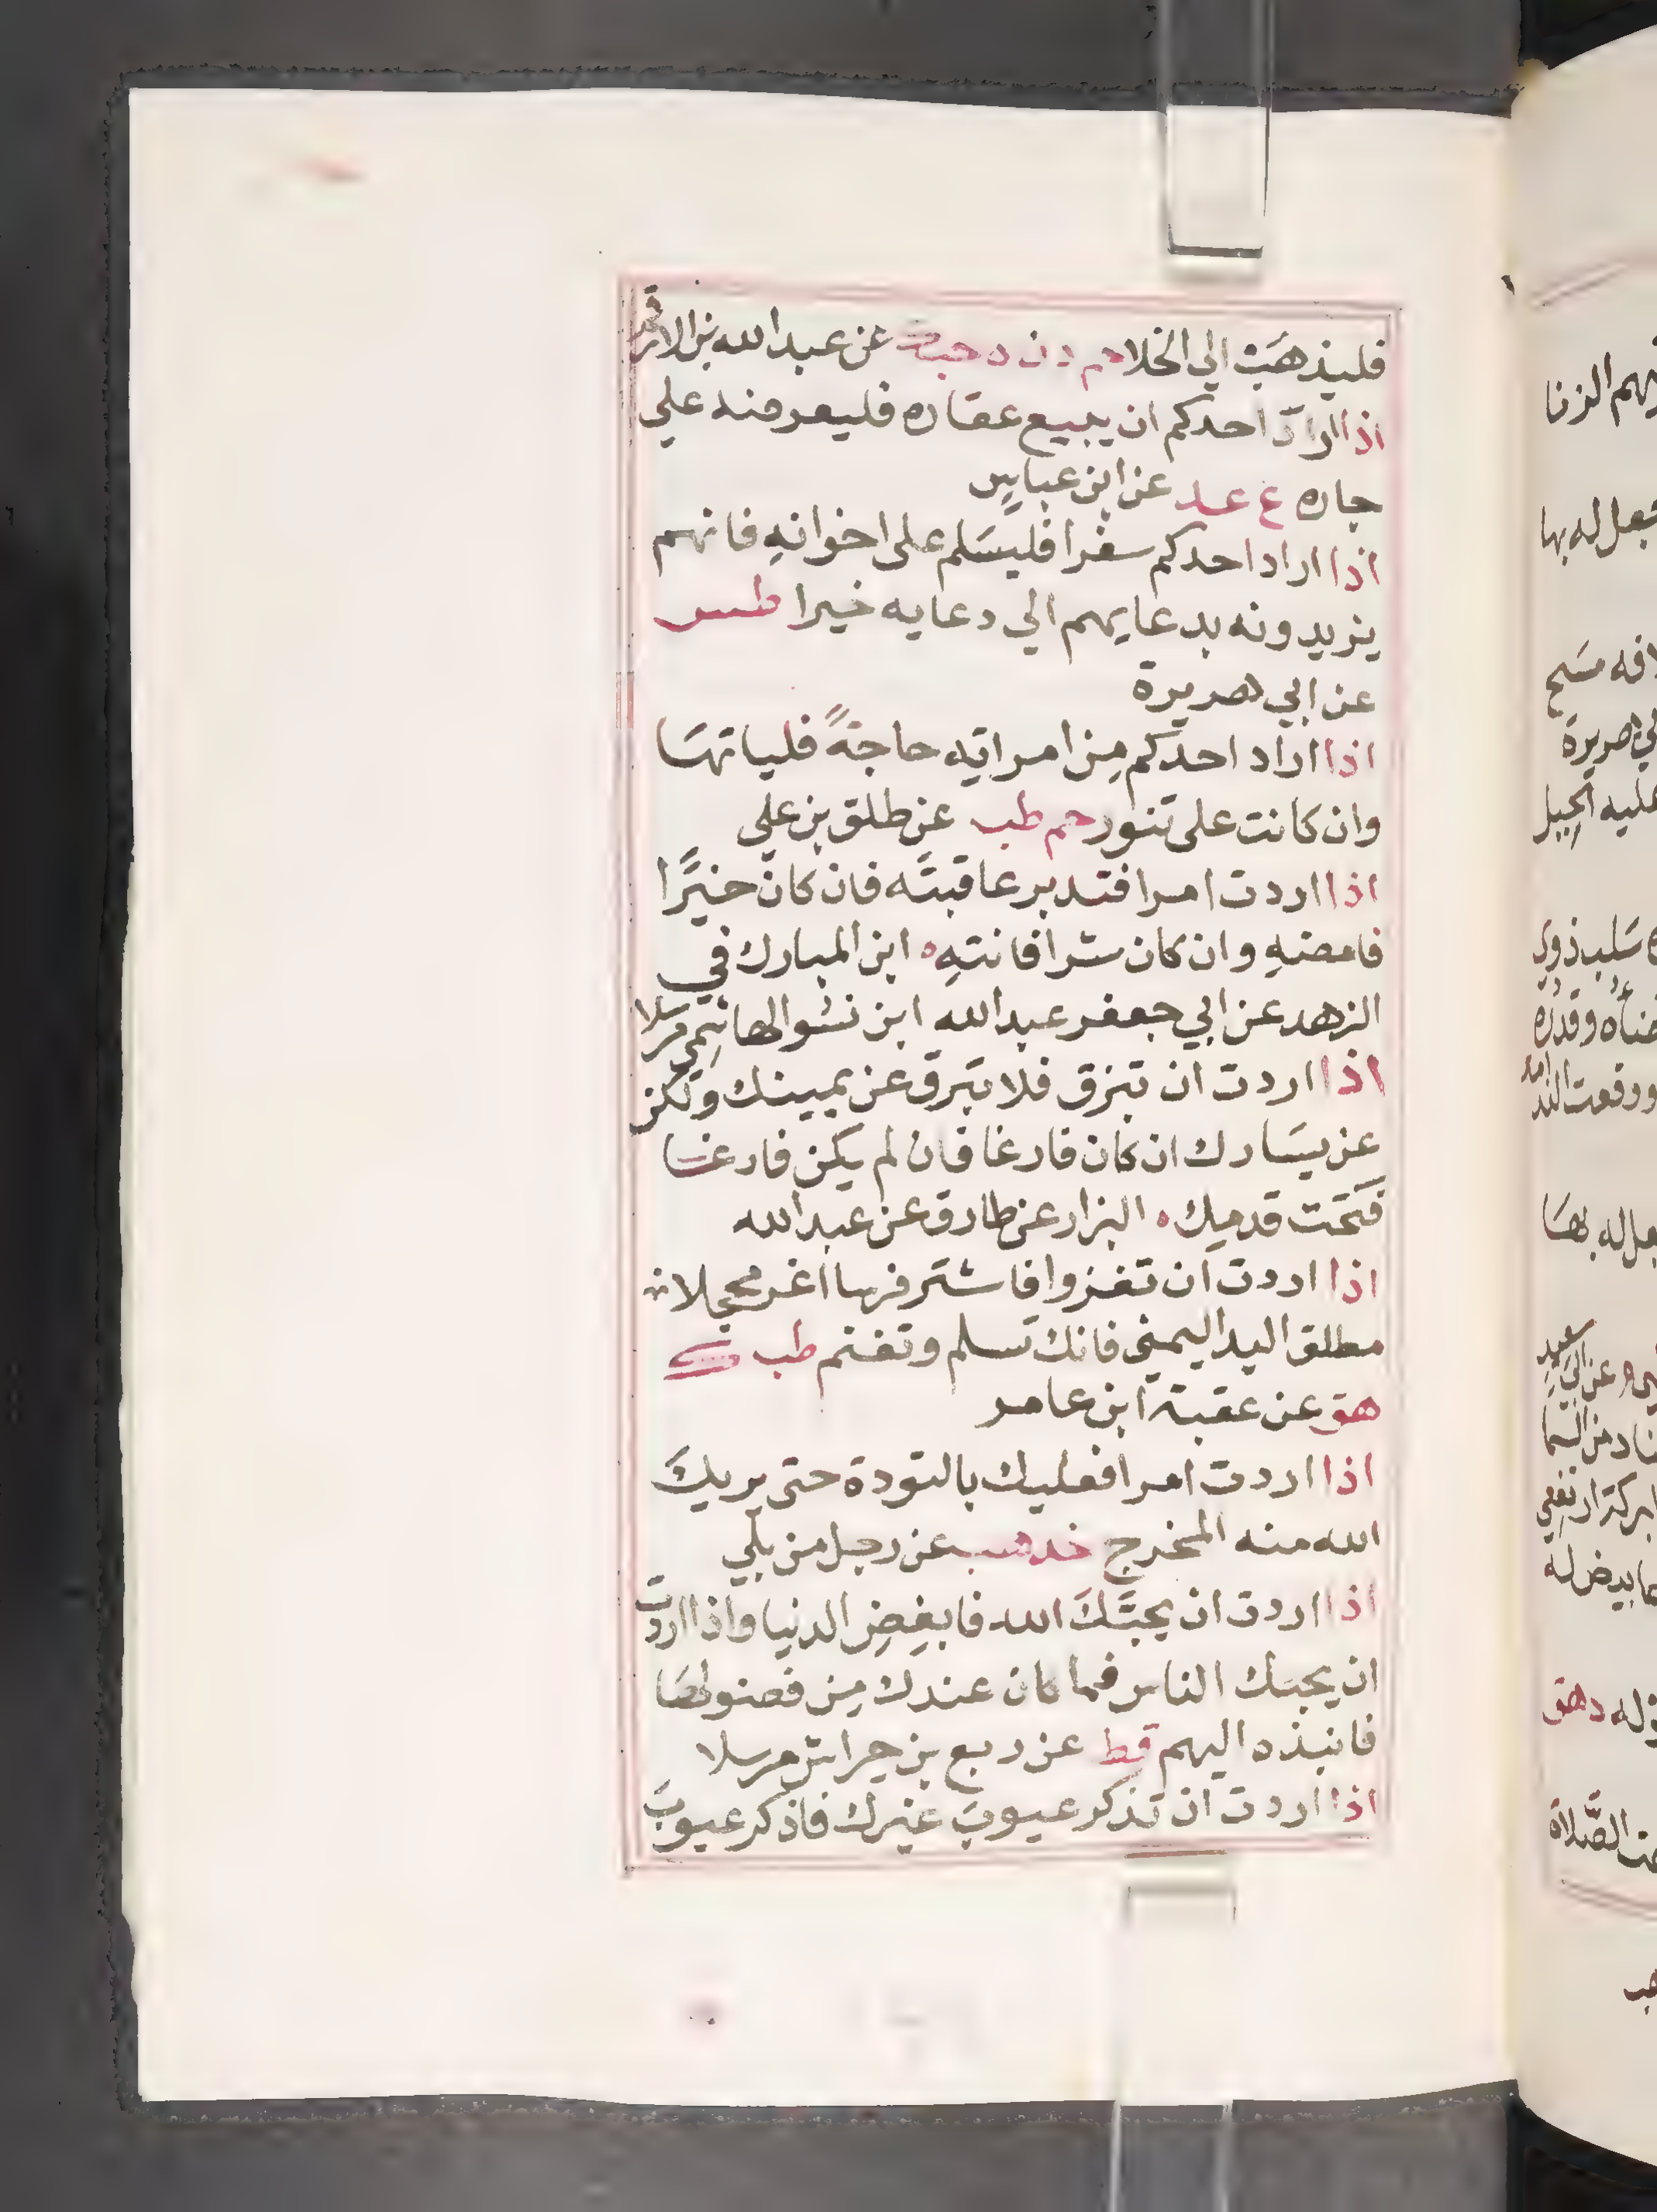 فليذهب الي الخلا حم د ن ه حب ك عن عبد الله بن الارقم
اذا اراد احدكم ان يبيع عقاره فليعرضه علي
جاره ع عد عن ابن عباس
اذا اراد احدكم سفرا فليسَلم على اخوانهِ فانهم
يزيدونه بدعايهم الي دعايه خيرا طس
عن ابي هريرة
اذا اراد احدكم مِن امراتِه حاجةً فلياتهَا
وان كانت على تنور حم طب عن طلق بن علي
اذا اردت امرا فتدبر عاقبتَه فان كان خيرًا
فامضهِ وان كان شرا فانتهِ ه ابن المبارك في
الزهد عن ابي جعفر عبد الله ابن نسوالهاشِمي مرسَلا
اذا اردت ان تبزق فلا تبزق عن يمينك ولكن
عن يسَارك ان كان فارغا فان لم يكن فارغا
فَتحَت قدميك ه البزار عن طارق عن عبد الله
اذا اردت ان تغزوا فاشتر فرسا اغر محجلا
مطلق اليد اليمني فانك تسلم وتغنم طب ك
هق عن عقبة ابن عامر
اذا اردت امرا فعليك بالتودة حتى يريكَ
الله منه المخرج خد هب عن رجل من بلي
اذا اردت ان يحبَّكَ الله فابغِضِ الدنيا واذا اردت
ان يحبك الناس فما كان عندك مِن فضولهَا
فانبذه اليهم قط عن ربع بن حراش مرسلا
اذا اردت ان تذكر عيوبَ غيرك فاذكر عيوبَ
يهم الزنا
جعل له بها
افه مسَح
لي هريرة
عليه الجبل
سَلب ذوي
ضناه وقدره
ووقعت الندامه
عل له بهَا
عن ابي سعيد
ناد من السما
ما بيض له
له د هق
ت الصَّلاة